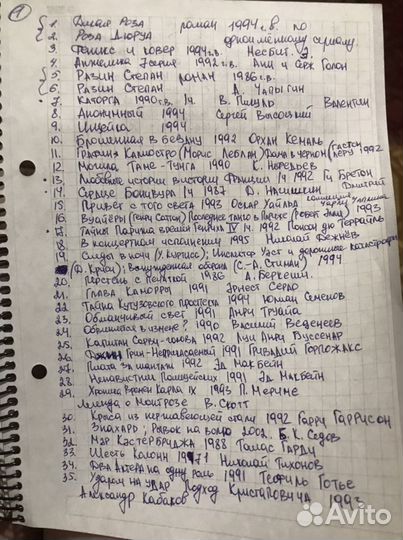 1
1. Дикая Роза роман 1994 г.в. по
2. Роза Дюруа одноимённому сериалу
3. Феникс и ковёр 1994 г.в. Несбит. Э.
4. Анжелика 1992 г.в. Анн и Серж Голон
5. Разин Степан роман 1986 г.в.
6. Разин Степан А. Чапыгин
7. Каторга 1990 г.в. 1ч. В. Пикуль Валентин
8. Анонимный 1994 Сергей Высоцкий
9. Ищейка 1994
10. Брошенная в бездну 1992 Орхан Кемаль
11. Графиня Калиостро (Морис Леблан) Дама в чёрном (Гастон Леру) 1992
12. Могила Таме-Тунга 1990 К.
13. Любовные истории в истории Франции 1ч 1992 Ги Бретон
14. Сердце Бонивура 1ч 1987 Д. Нагишкин Дмитрий
15. Привет с того света 1993 Оскар Уайльд
16. Вуайеры (Генри Саттон) Последнее танго в Париже (Роберт Элли) 1993
17. Тайны Парижа времён Генриха IV 1ч. 1992 Понсон дю Террайль
18. В концертном исполнении 1995 Николай Дежнёв
19. Следы в ночи (У. ); Инспектор Уэст и дорожные катастрофы
(Д. Кризи); Вынужденная оборона (С.-А. Стиман) 1994
20. Перстень с печаткой 1986 А. Беркеши
21. Глава Каморры 1991 Эрнест Серло
22. Тайна Кутузовского проспекта 1994 Юлиан Семёнов
23. Обманчивый свет 1991 Анри Труайя
24. Обвиняется в измене? 1990 Василий Веденеев
25. Капитан Сорви-голова 1992 Луи Анри Буссенар
26. Джин Грин-Неприкасаемый 1991 Гривадий Горпожакс
27. Плата за шантаж 1992 Эд Макбейн
28. Ненавистник Полицейских 1991 Эд Макбейн
29. Хроника времён Карла IX 1993 П. Мериме
Легенда о Монтрозе В. Скотт
30. Крыса из нержавеющей стали 1992 Гарри Гаррисон
31. Знахарь; Рывок на волю 2002. Б. К. Седов
32. Мэр Кэстербриджа 1988 Томас Гарди
33. Шесть Колонн 1971 Николай Тихонов
34. Два Актёра на одну роль 1991 Теофиль Готье
35. Ударом на удар Подход Кристаповича 1993
Александр Кабаков
Avito